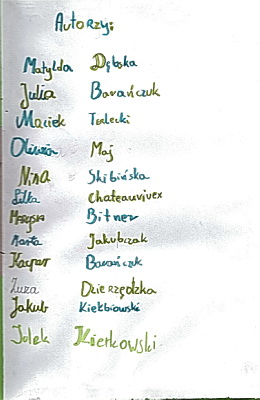 Autorzy:
Matylda Dębska
Julia Barańczuk
Maciek Terlecki
Oliwia Maj
Nina Skibińska
Lilka Chateauvieux
Bitner
Marta Jakubczak
Kacper Barańczuk
Zuza Dzierzędzka
Jakub Kiełbiowski
Julek Kierkowski